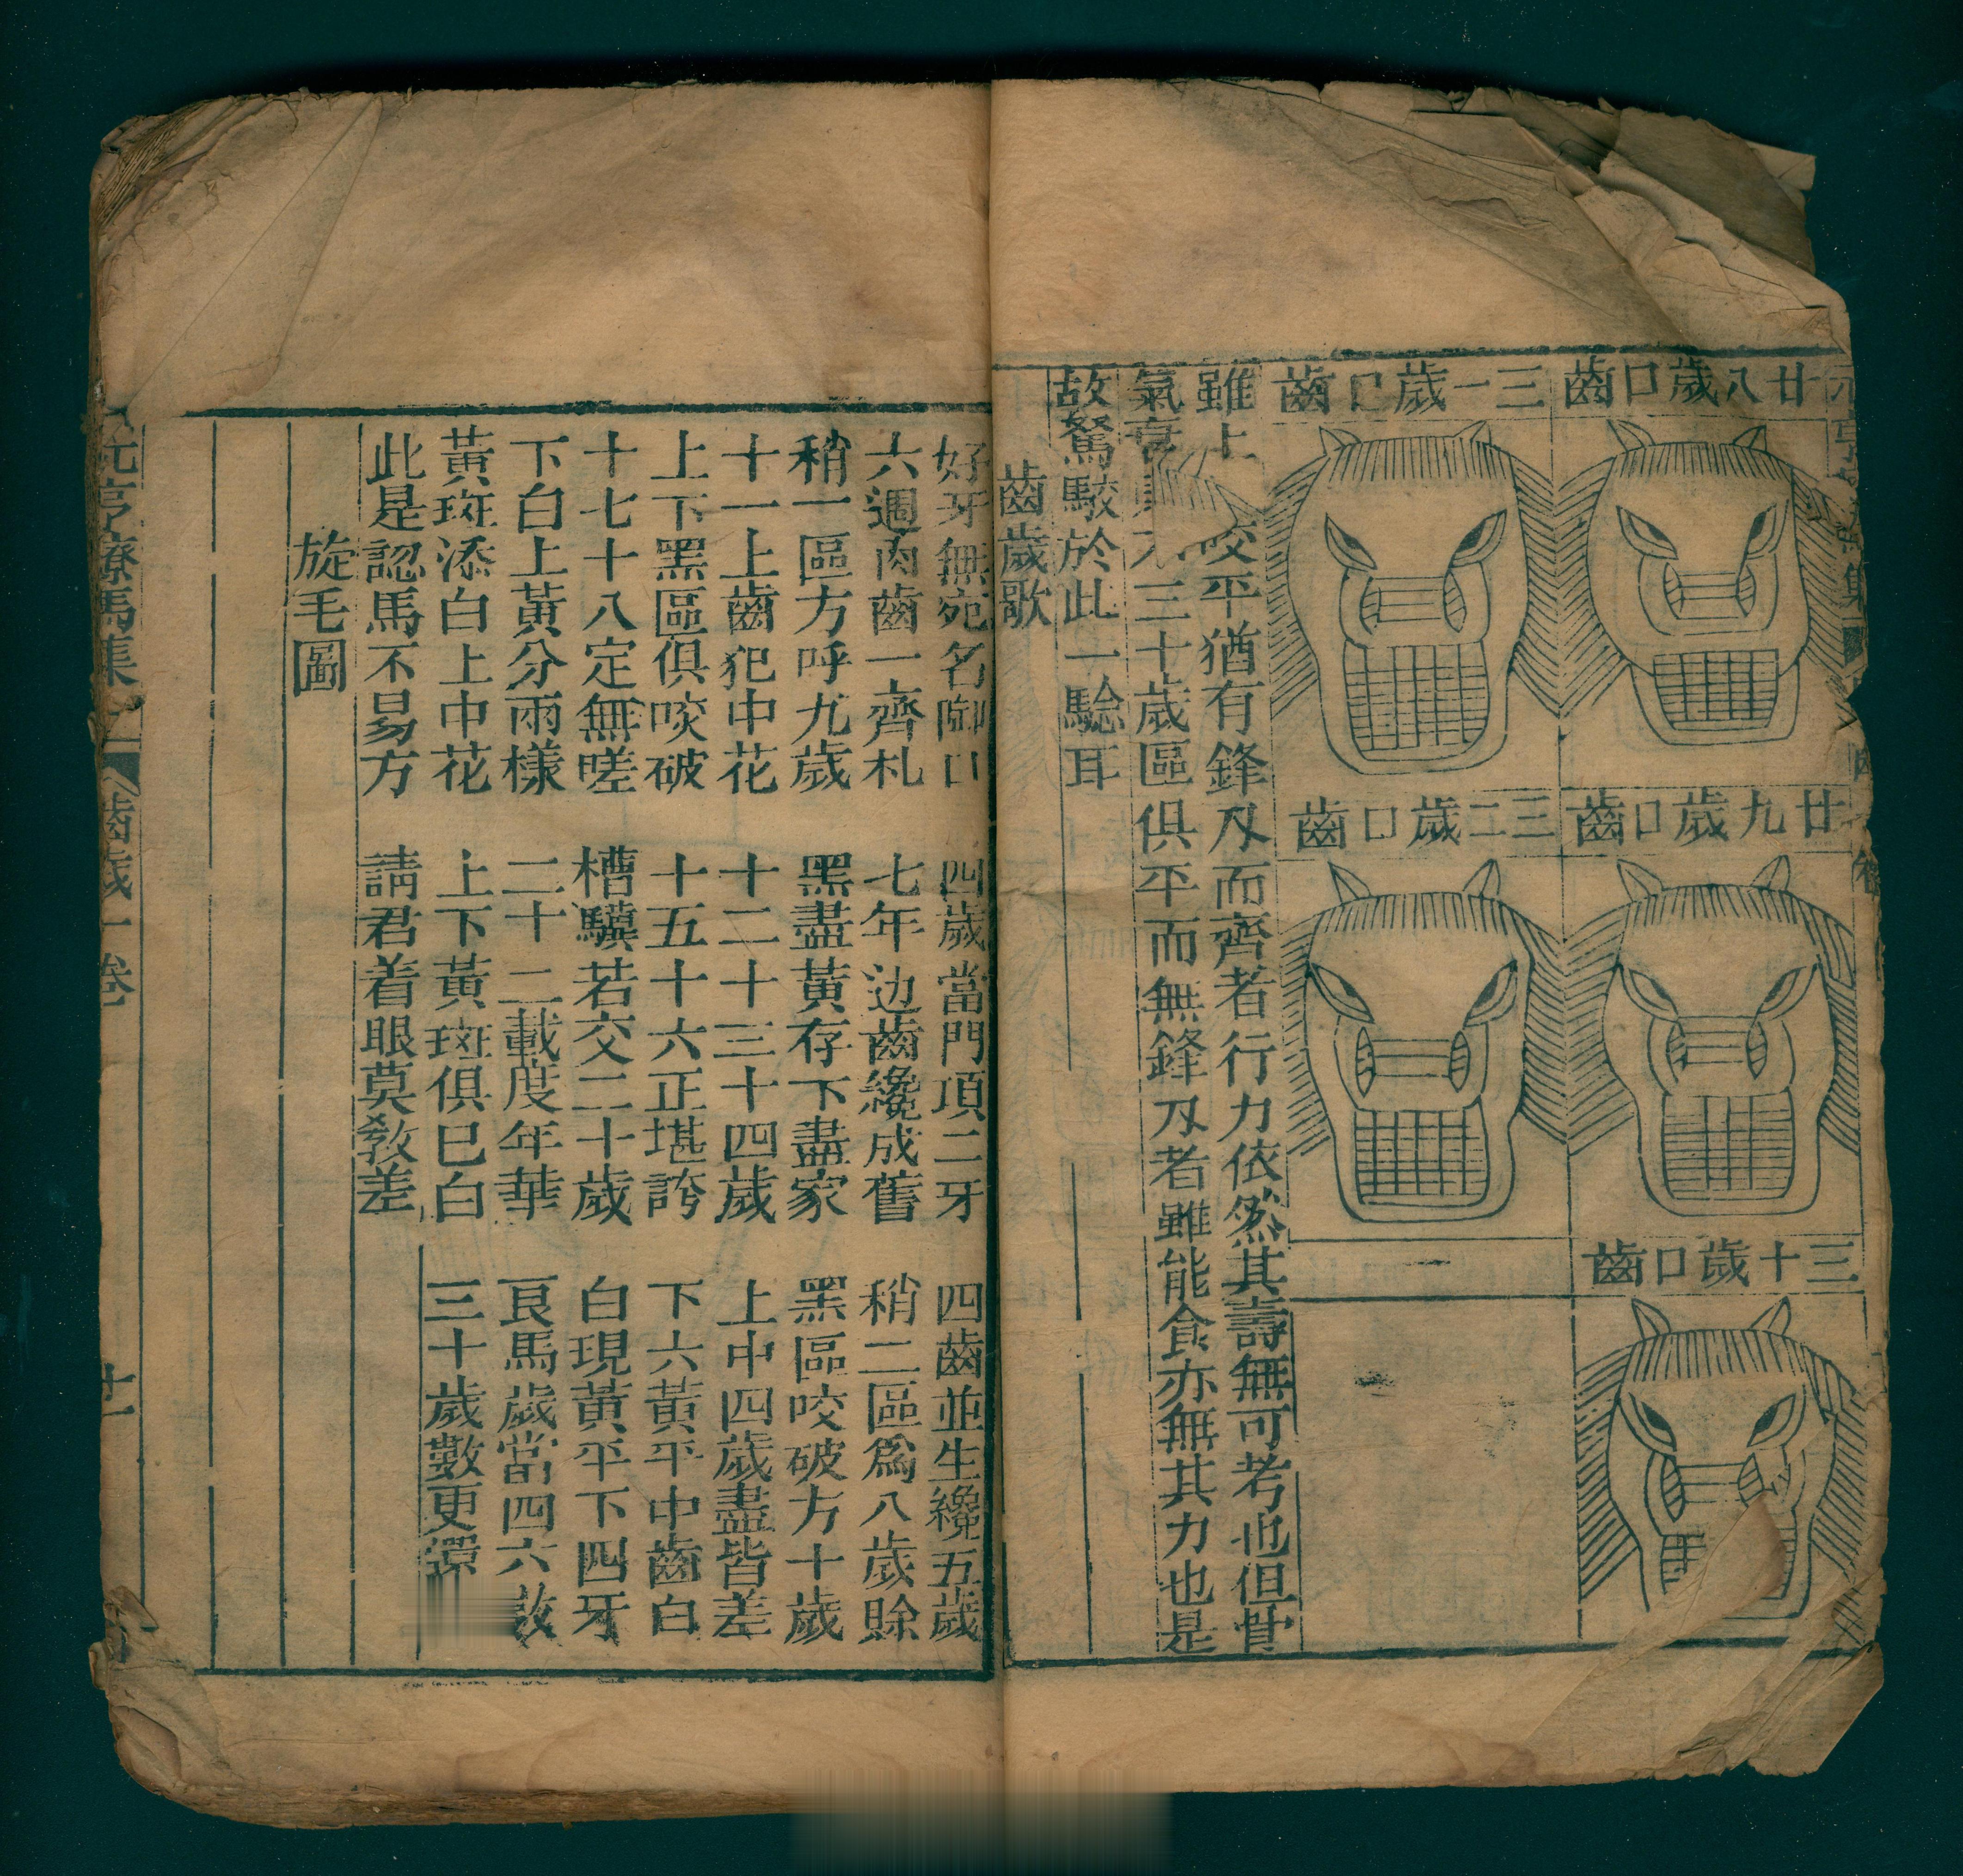 廿八歲口齒
廿九歲口齒
三十歲口齒
三一歲口齒
三二歲口齒
雖上 咬平猶有鋒刄而齊者行力依然其壽無可考也但骨
氣衰 三十歲區俱平而無鋒刄者雖能食亦無其力也是
故駑駿於此一騐耳
齒歲歌
好牙無宛名御口 四歲當門項二牙 四齒並生纔五歲
六週肉齒一齊札 七年边齒纔成舊 稍二區爲八歲賒
稍一區方呼九歲 黑盡黃存下盡家 黑區咬破方十歲
十一上齒犯中花 十二十三十四歲 上中四歲盡皆差
上下黑區俱咬破 十五十六正堪誇 下六黃平中齒白
十七十八定無嗟 槽驥若交二十歲 白現黃平下四牙
下白上黃分兩樣 二十二載度年華 良馬歲當四六
黃斑添白上中花 上下黃斑俱已白 三十歲數更還
此是認馬不易方 請君着眼莫教差
旋毛圖
元亨療馬集 齒歲一卷